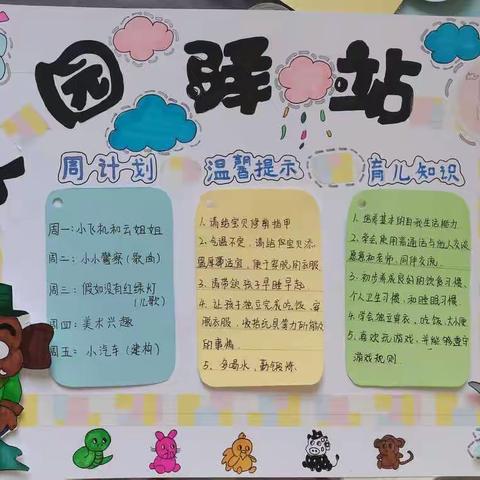 园驿站
周计划
周一：小飞机和云姐姐
周二：小小警察（歌曲）
周三：假如没有红绿灯
（儿歌）
周四：美术兴趣
周五：小汽车（建构）
温馨提示
1、请给宝贝修剪指甲
2、气温不定，请给宝贝添
便于穿脱的衣服
3、请带领孩子早睡早起
4、让孩子独立完成吃饭、穿
脱衣服、收拾玩具等力所能及
的事情
5、多喝水，勤锻炼
育儿知识
1、培养基本的自我生活能力
2、学会使用普通话与他人交谈
和老师、同伴交流
3、初步养成良好的饮食习惯、
个人卫生习惯、和睡眠习惯
4、学会独立穿衣、吃饭、大小便
5、喜欢玩游戏，并能够遵守
游戏规则